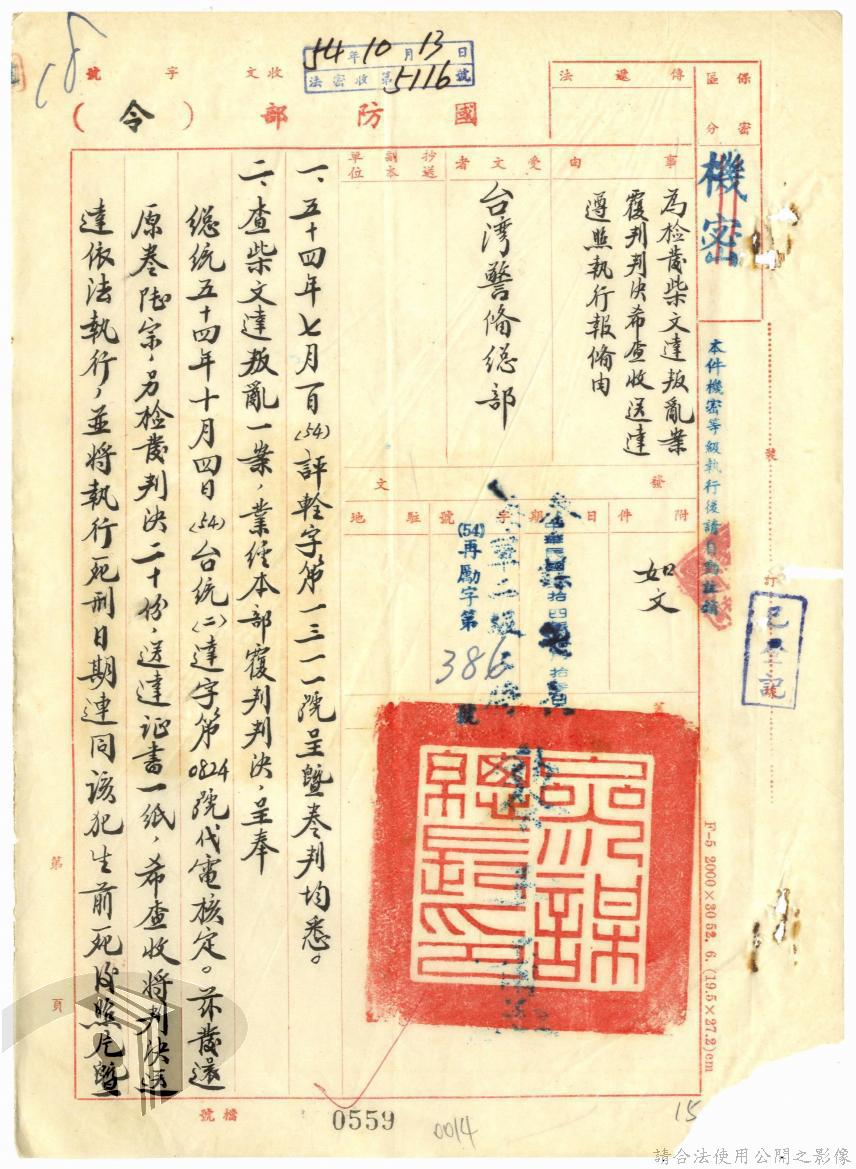 保密區分
機密
本件機密等級執行後請自動註銷
傳遞法
國防部（令）
收文 字 號
54年10月13日
法密收第5116號
事由
為檢發柴文達叛亂案
覆判判決希查收送達
遵照執行報備由
受文者
台灣警備總部
抄送副本單位
附件
如文
發文
日期
字號
(54)再勵字第
386號
駐地
參謀總長印
一、五十四年七月一日(54)評軫字第一三一一號呈暨卷判均悉。
二、查柴文達叛亂一案，業經本部覆判判決，呈奉
總統五十四年十月四日(54)台統(二)達字第0824號代電核定。茲發還
原卷陸宗，另檢發判決二十份，送達証書一紙，希查收將判決送
達依法執行，並將執行死刑日期連同該犯生前死後照片暨
第 頁
裝
訂
已登記
F-5 2000×30 52. 6. (19.5×27.2)cm
檔號
0559
0014
15
18
請合法使用公開之影像